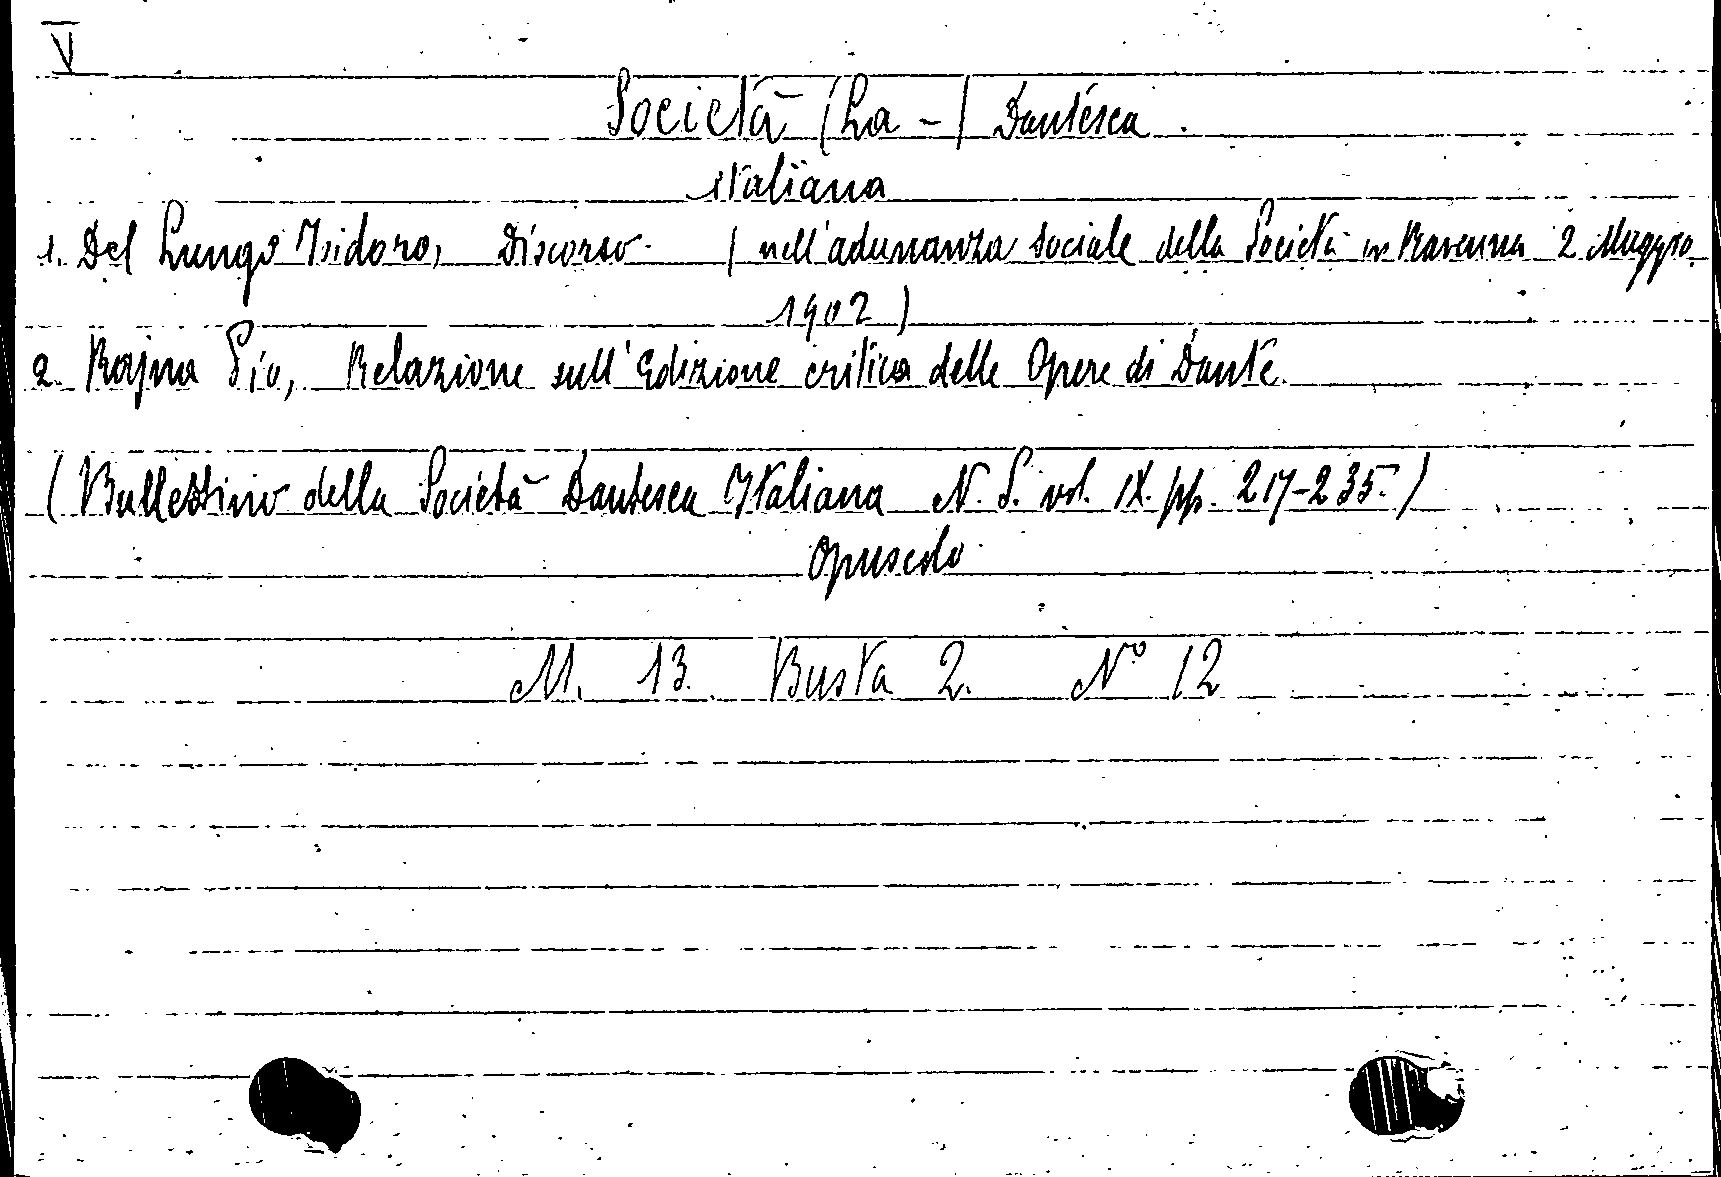 V
Società (La -) Dantesca
italiana
1. Del Lungo Isidoro, Discorso (nell'adunanza sociale della Società in Ravenna 2 Maggio
1902)
2. Rajna Pio, Relazione sull'Edizione critica delle Opere di Dante.
(Bullettino della Società Dantesca Italiana N. S. vol. IX. pp. 217-235.)
Opuscolo
M. 13. Busta 2. N° 12